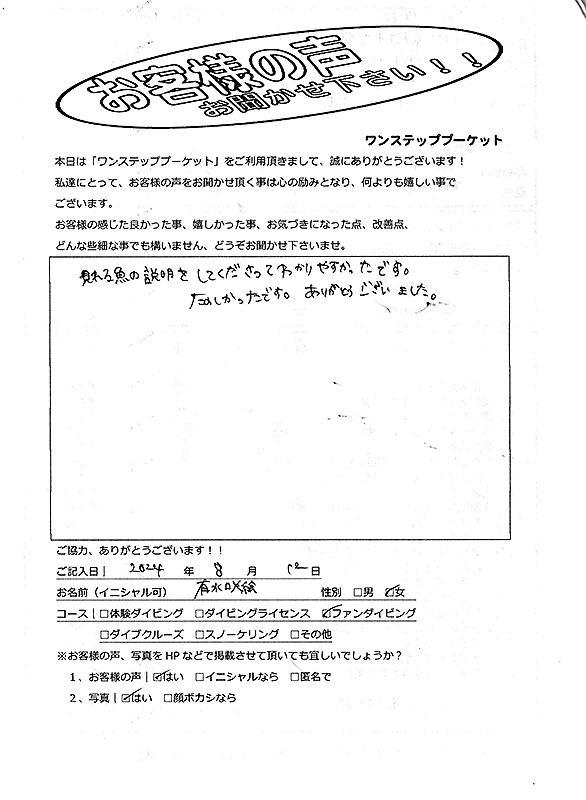 お客様の声
お聞かせ下さい！！
ワンステッププーケット
本日は「ワンステッププーケット」をご利用頂きまして、誠にありがとうございます！
私達にとって、お客様の声をお聞かせ頂く事は心の励みとなり、何よりも嬉しい事で
ございます。
お客様の感じた良かった事、嬉しかった事、お気づきになった点、改善点、
どんな些細な事でも構いません、どうぞお聞かせ下さいませ。
見れる魚の説明をしてくださってわかりやすかったです。
たのしかったです。ありがとうございました。
ご協力、ありがとうございます！！
ご記入日| 2024 年 8 月 12 日
お名前（イニシャル可） 有水咲絵 性別 □男 ☑女
コース|□体験ダイビング □ダイビングライセンス ☑ファンダイビング
□ダイブクルーズ □スノーケリング □その他
※お客様の声、写真をHPなどで掲載させて頂いても宜しいでしょうか？
1、お客様の声|☑はい □イニシャルなら □匿名で
2、写真|☑はい □顔ボカシなら